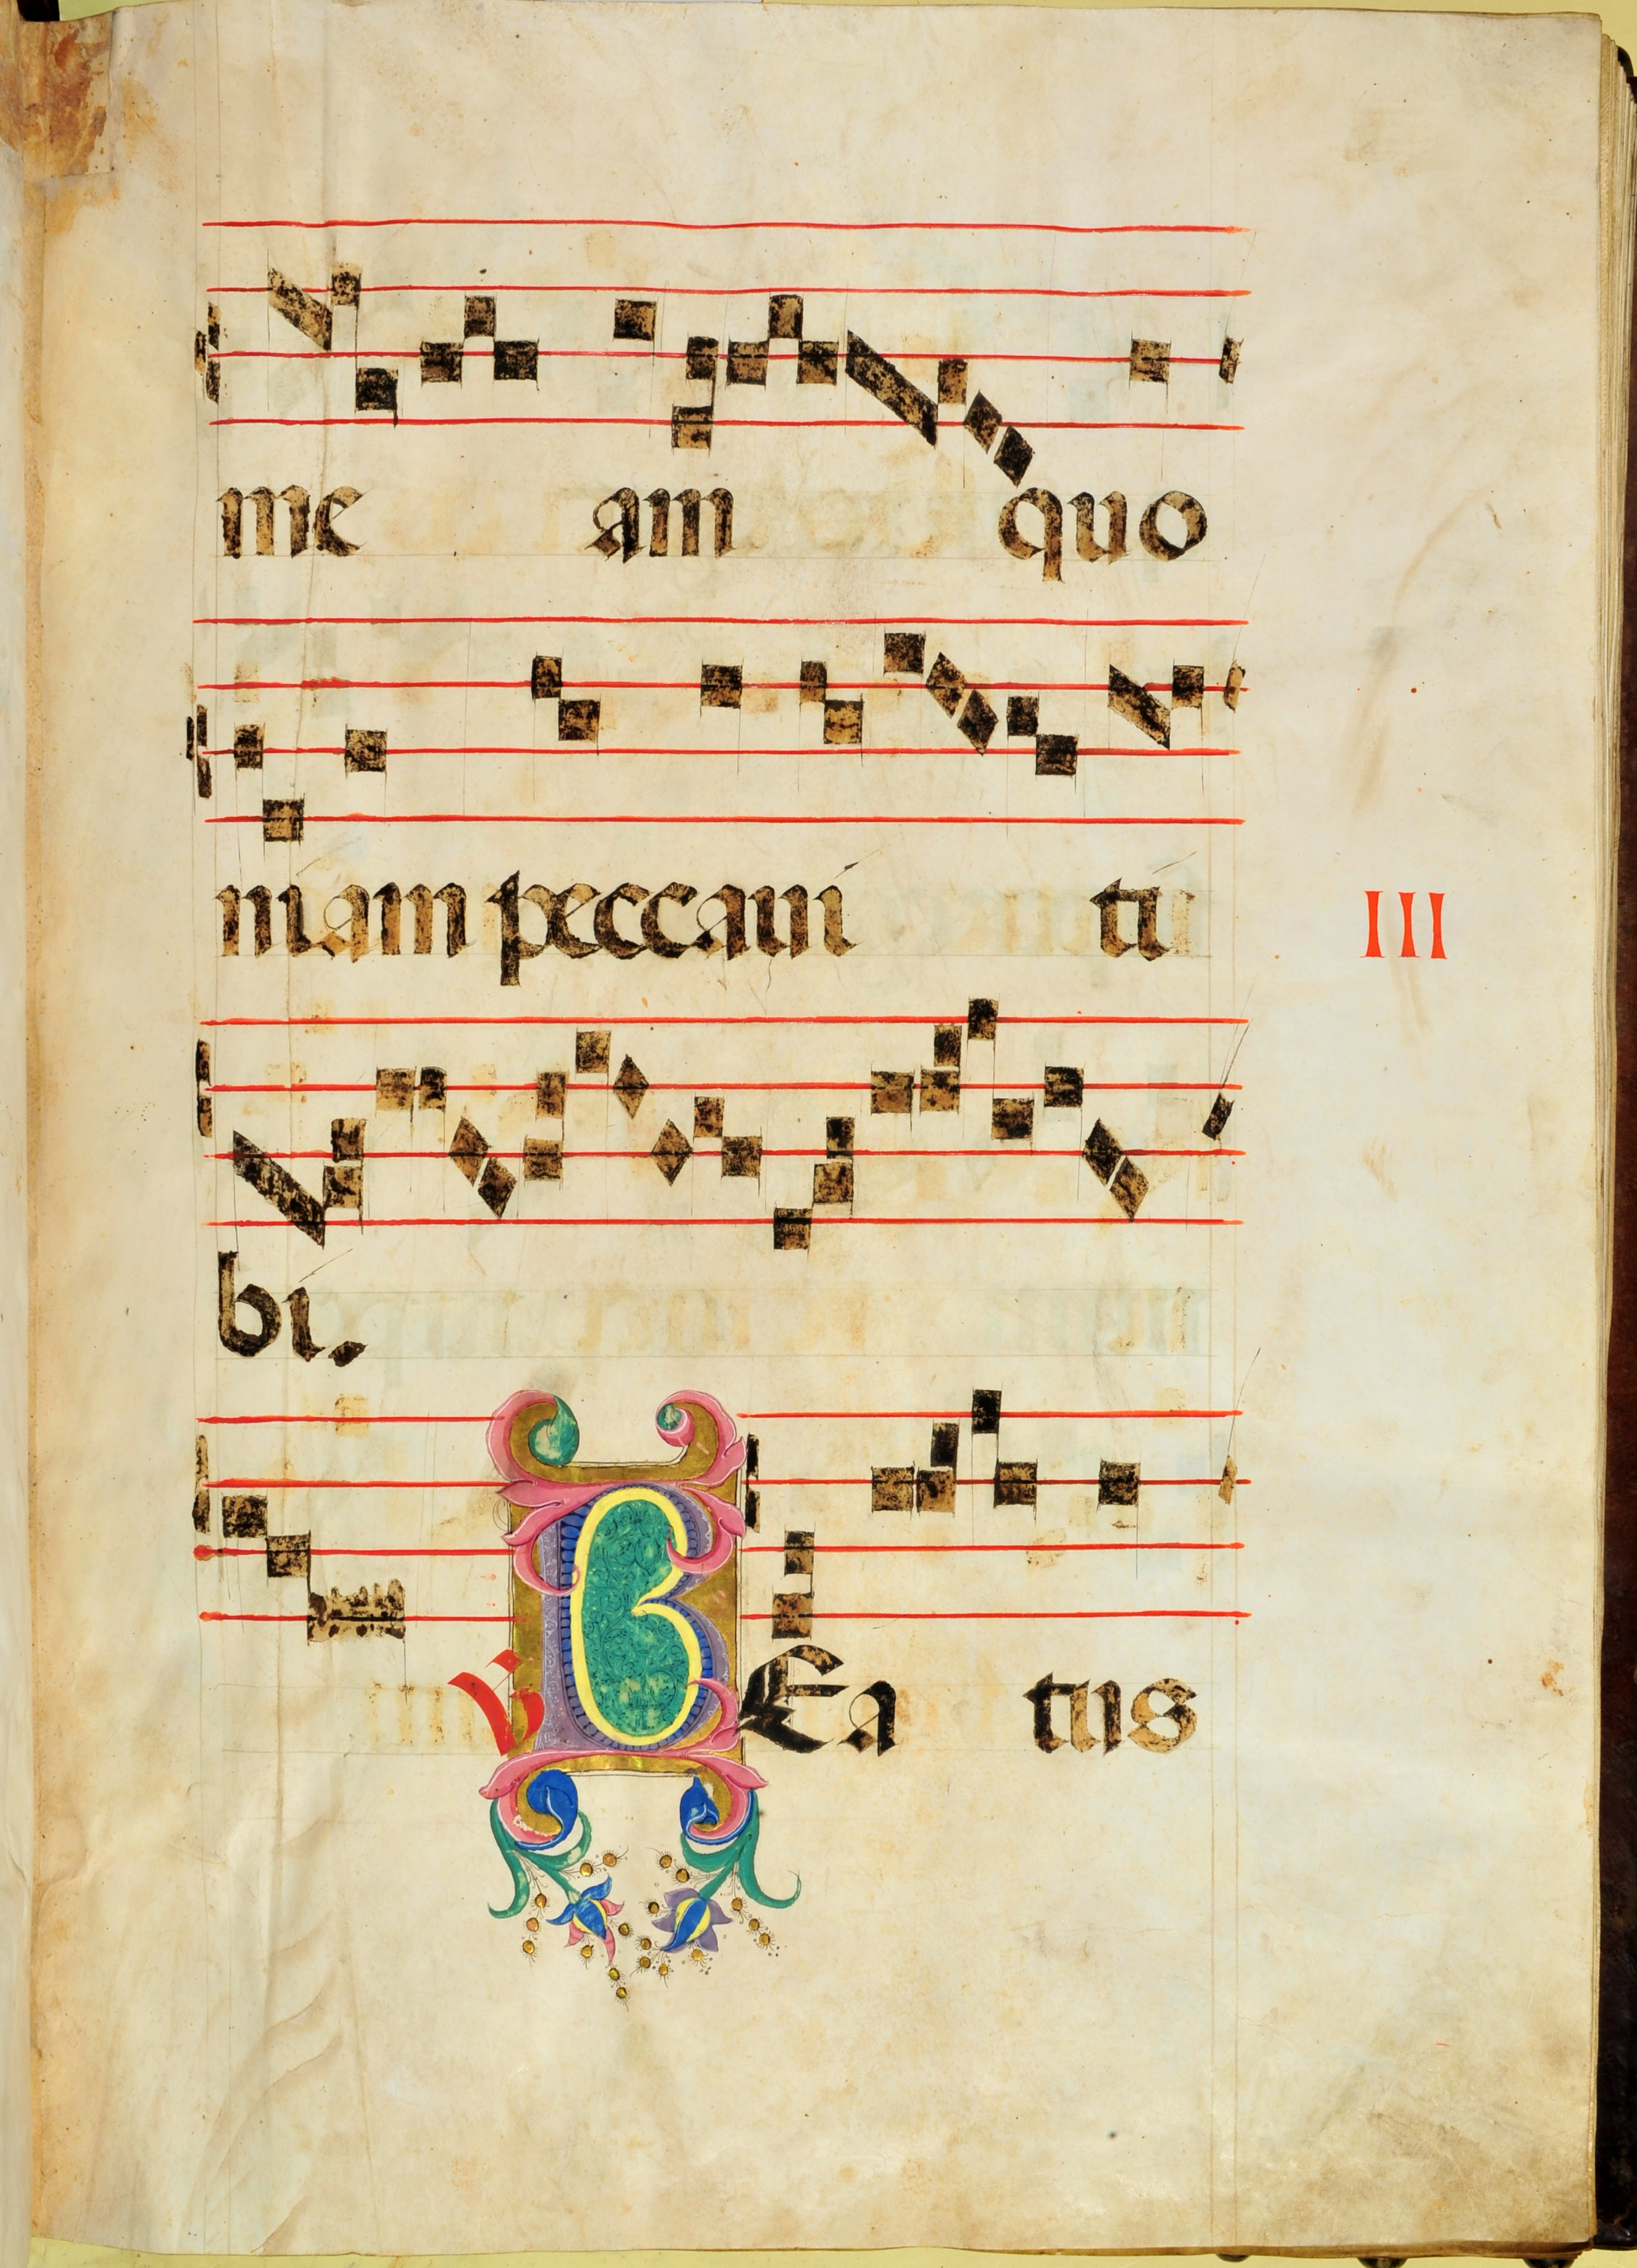 me am quo
niam peccaui ti
III
bi.
℣ BEa tus